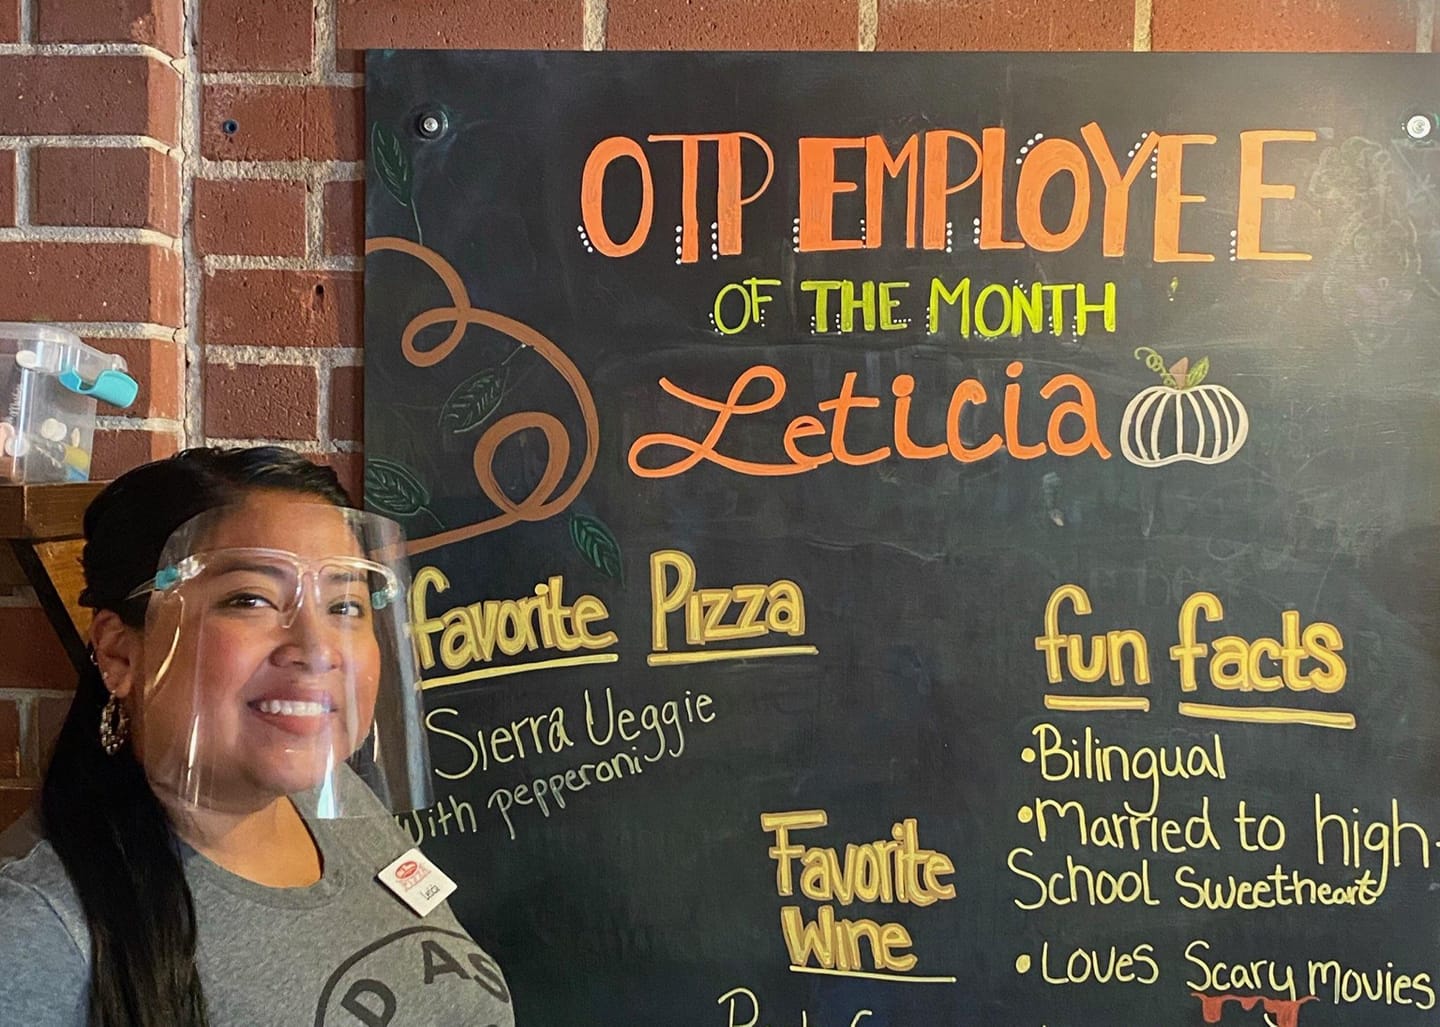 OTP EMPLOYEE
OF THE MONTH
Leticia
Favorite Pizza
Sierra Veggie
with pepperoni
Favorite
Wine
fun facts
•Bilingual
•Married to high-
School Sweetheart
•Loves Scary Movies
PIZZA
Leticia
DAS